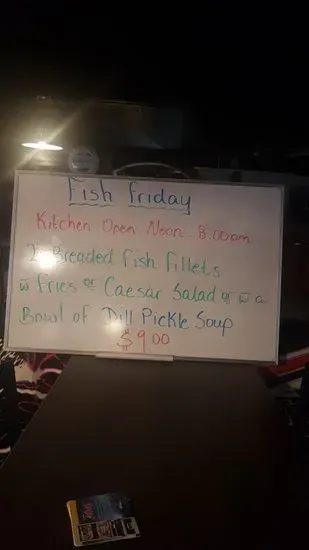 Fish Friday
Kitchen Open Noon 8:00pm
2 Breaded Fish Fillets
w̅ fries or Caesar Salad or w̅ a
Bowl of Dill Pickle Soup
$9.00